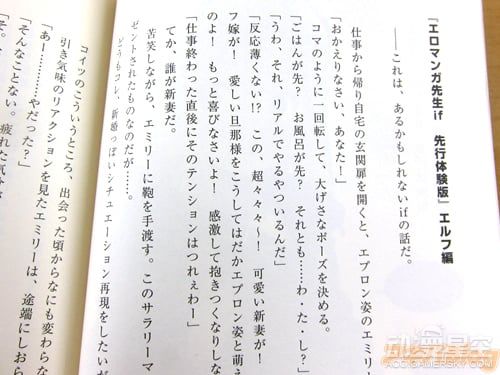 『エロマンガ先生if　先行体験版』エルフ編
――これは、あるかもしれないifの話だ。
仕事から帰り自宅の玄関扉を開くと、エプロン姿のエミリ
「おかえりなさい、あなた！」
コマのように一回転して、大げさなポーズを決める。
「ごはんが先？　お風呂が先？　それとも……わ・た・し？」
「うわ、それ、リアルでやるやついるんだ」
「反応薄くない!?　この、超々々～！　可愛い新妻が！
フ嫁が！　愛しい旦那様をこうしてはだかエプロン姿と萌え
のよ！　もっと喜びなさいよ！　感激して抱きつくなりしな
「仕事終わった直後にそのテンションはつれぇわー」
てか、誰が新妻だ。
苦笑しながら、エミリーに鞄を手渡す。このサラリーマ
ゼントされたものなのだが……。
どうもコレ、新婚っぽいシチュエーション再現をしたいが
コイツのこういうところ、出会った頃からなにも変わらな
引き気味のリアクションを見たエミリーは、途端にしおら
「あー…………やだった？」
「そんなことない。疲れた気分
「そ。
ACG.GAMERSKY.COM